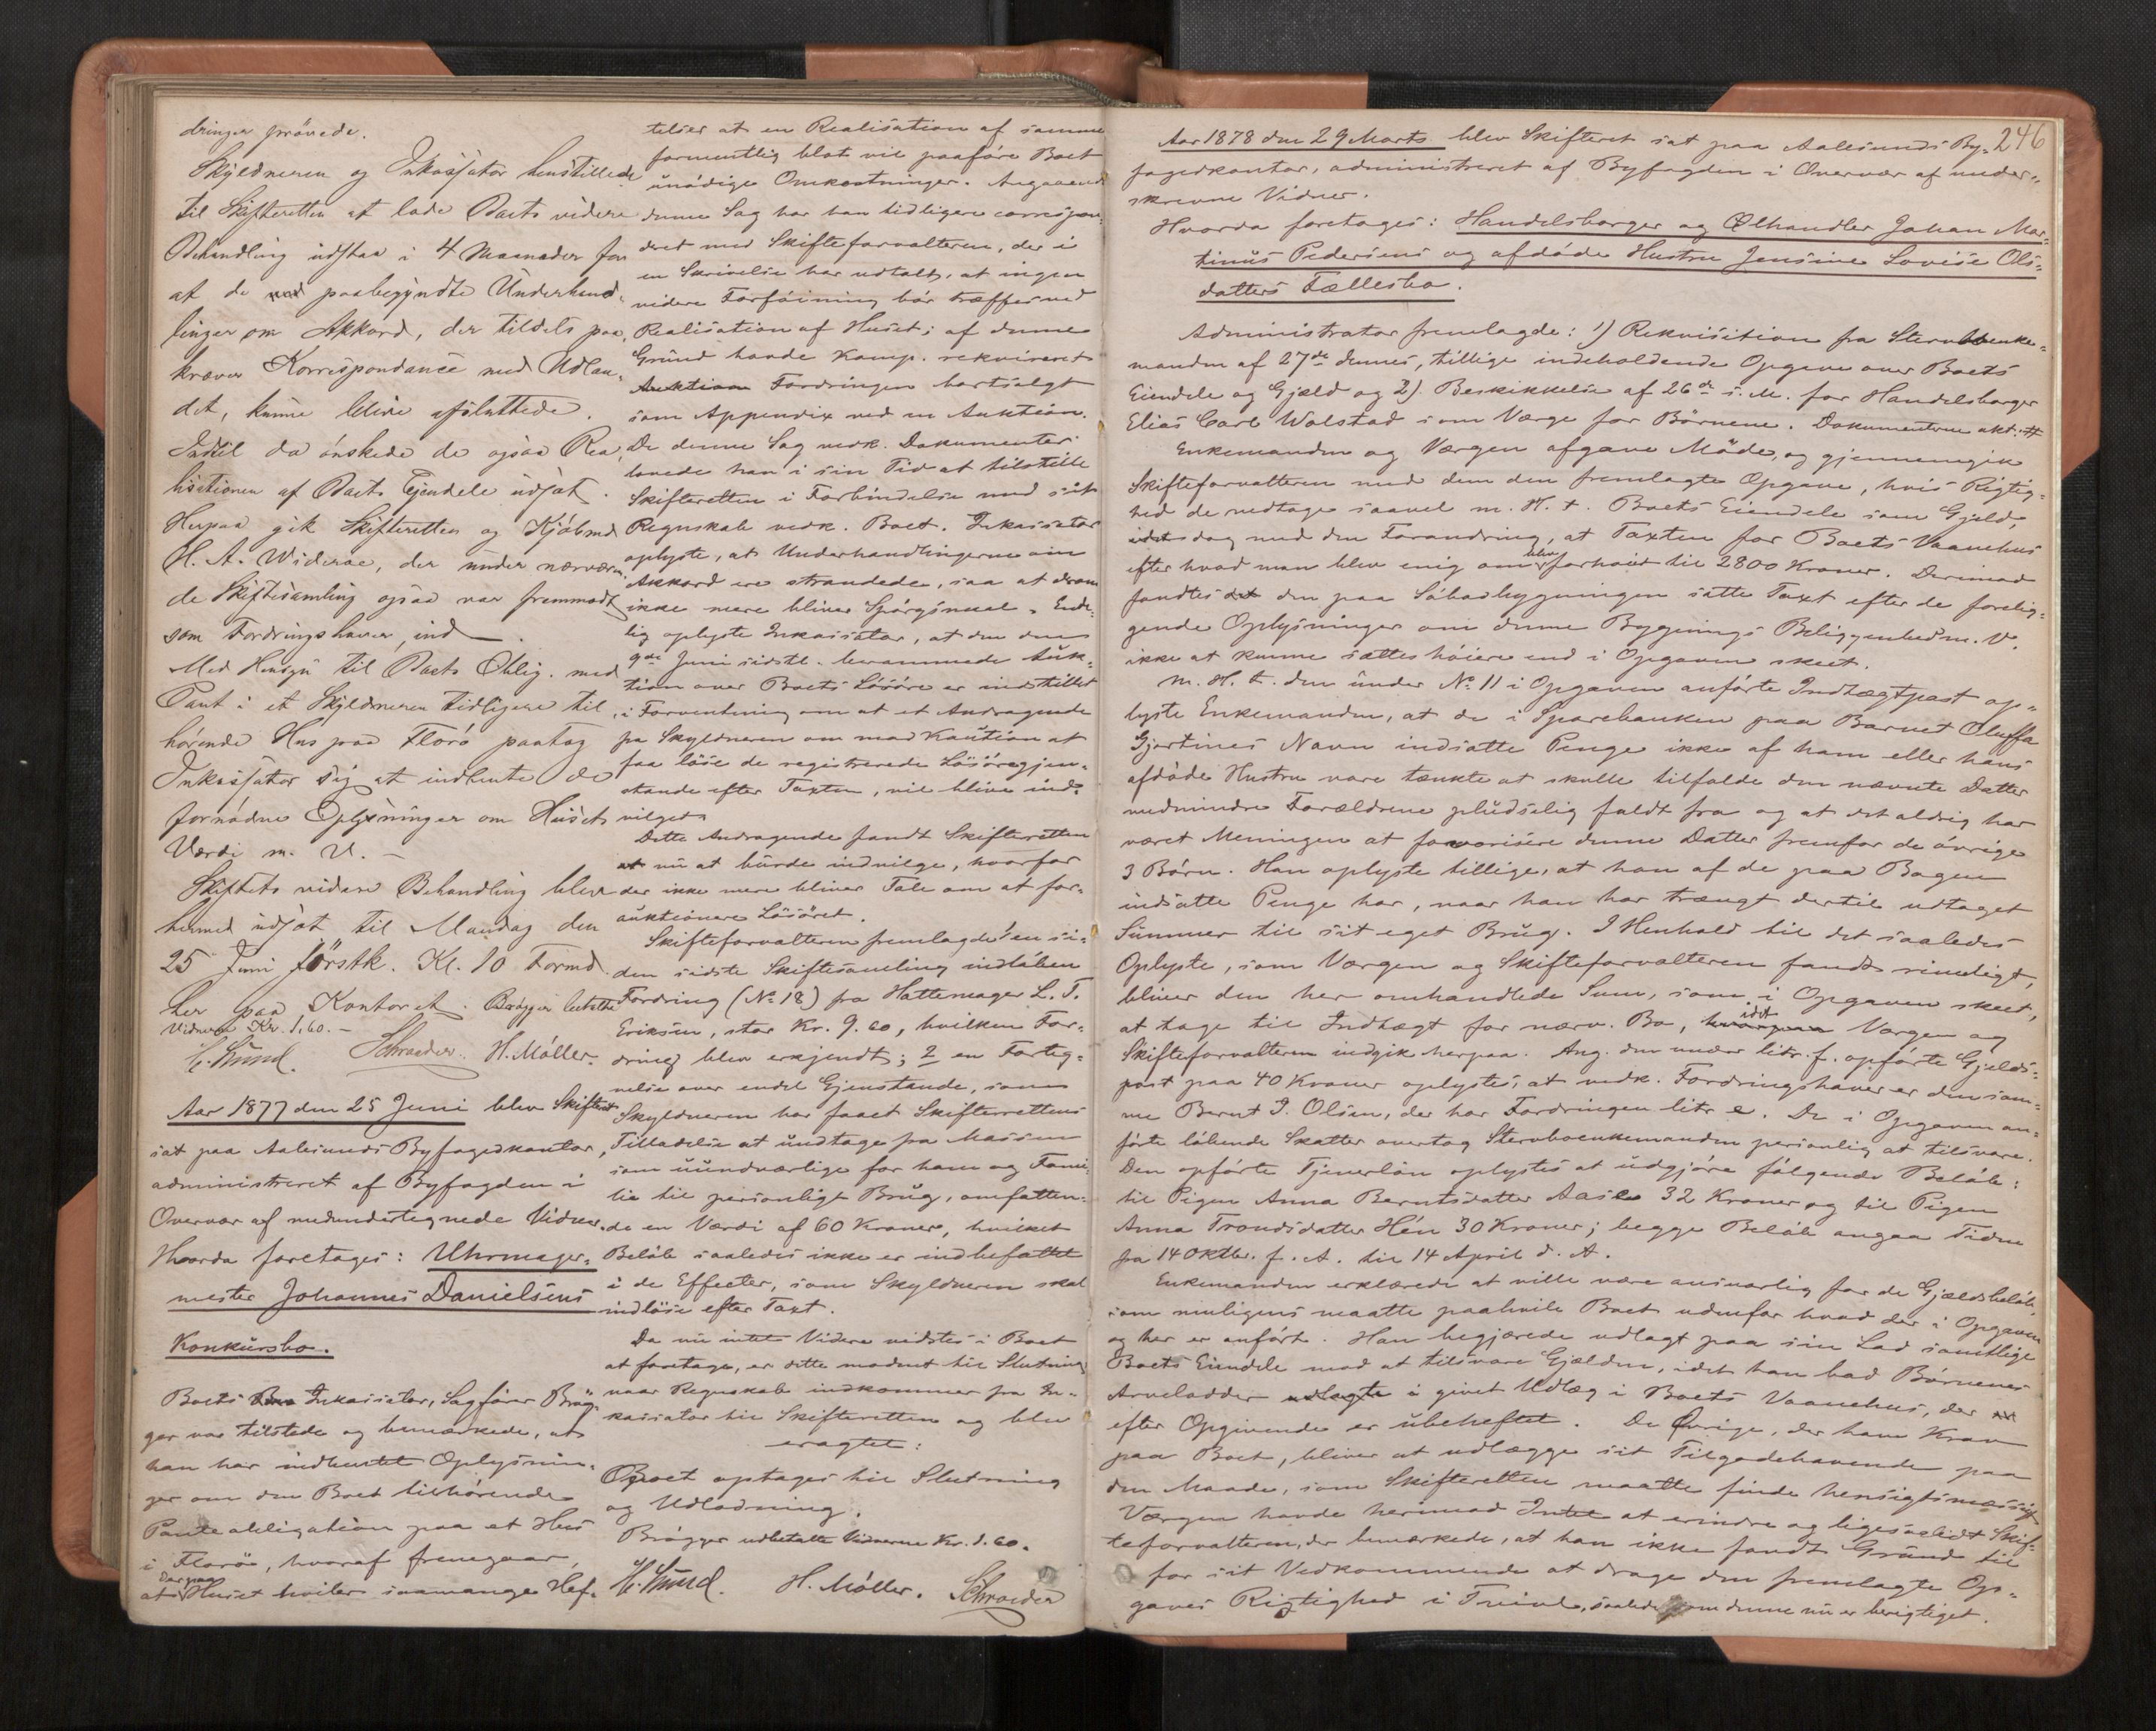 dringer prövede.
Skyldneren og Inkassator henstillede
til Skifteretten at lade Boets videre
Behandling udstaa i 4 Maaneder for
at de paabegyndte Underhand-
linger om Akkord, der tildels paa-
kræver Korrespondance med Udlan-
det, kunne blive afsluttede.
Indtil da önskede de ogsaa Rea-
lisationen af Boets Eiendele udsat.
Herpaa gik Skifteretten og Kjöbmd
H. A. Wideröe, der under nærværen-
de Skiftesamling ogsaa var fremmødt
som Fordringshaver, ind.
Med Hensyn til Boets Oblig. med
Pant i et Skyldneren tidligere til-
hörende Hus paa Florö paatog
Inkassator sig at indhente de
fornödne Oplysninger om Husets
Værdi m. V. -
Skiftets videre Behandling blev
hermed udsat til Mandag den
25 Juni förstk. Kl. 10 Formd.
her paa Kontoret. Brögger betalte
Vidnerne Kr. 1,60. -
C. Lund. Schroeder. H. Möller.
Aar 1877 den 25 Juni blev Skifteret
sat paa Aalesunds Byfogedkontor,
administreret af Byfogden i
Overvær af medundertegnede Vidner.
Hvorda foretages: Uhrmager-
mester Johannes Danielsens
Konkursbo.
Boets Inkassator, Sagförer Brög-
ger var tilstede og bemærkede, at
han har indhentet Oplysnin-
ger om den Boet tilhörende
Panteobligation paa et Hus
i Florö, hvoraf fremgaar,
at derpaa Huset hviler saamange Hef-
telser at en Realisation af samme
formentlig blot vil paaföre Boet
unödige Omkostninger. Angaaende
denne Sag har han tidligere correspon-
deret med Skifteforvalteren, der i
en Skrivelse har udtalt, at ingen
videre Forföining bör træffes ved
Realisation af Huset; af denne
Grund havde Komp. rekvireret
Auktion Fordringen bortsolgt
som Appendix ved en Auktion.
De denne Sag vedk. Dokumenter
lovede han i sin Tid at tilstille
Skifteretten i Forbindelse med sit
Regnskab vedk. Boet. Inkassator
oplyste, at Underhandlingerne om
Akkord ere strandede, saa at derom
ikke mere bliver Spörgsmaal. Ende-
lig oplyste Inkassator, at den den
9de Juni sidstl. berammede Auk-
tion over Boets Lösöre er indstillet
i Forventning om at et Andragende
fra Skyldneren om mod Kaution at
faa löse de registrerede Lösöregjen-
stande efter Taxten, vil blive ind-
vilget.
Dette Andragende fandt Skifteretten
at nu at burde indvilge, hvorfor
der ikke mere bliver Tale om at for-
auktionere Lösöret.
Skifteforvalteren fremlagde 1 en si-
den sidste Skiftesamling indlöben
Fordring (No 18) fra Hattemager L. T.
Eriksen, stor Kr. 9.60, hvilken For-
dring blev erkjendt; 2 en Forteg-
nelse over endel Gjenstande, som
Skyldneren har faaet Skifterettens
Tilladelse at undtage fra Massen
som uundværlige for ham og Fami-
lie til personligt Brug, omfatten-
de en Værdi af 60 Kroner, hvilket
Belöb saaledes ikke er indbefattet
i de Effecter, som Skyldneren skal
indlöse efter Taxt.
Da nu intet Videre vidstes i Boet
at foretage, er dette modent til Slutning
naar Regnskab indkommer fra In-
kassator til Skifteretten og blev
eragtet:
Boet optages til Slutning
og Udlodning.
Brögger udbetalte Vidnerne Kr. 1.60.
C. Lund. H. Möller. Schroeder
246
Aar 1878 den 29 Marts blev Skifteret sat paa Aalesunds By-
fogedkontor, administreret af Byfogden i Overvær af under-
skrevne Vidner.
Hvorda foretages: Handelsborger og Ølhandler Johan Mar-
tinus Pedersens og afdöde Hustru Jensine Lovise Ols-
datters Fællesbo.
Administrator fremlagde: 1) Rekvisition fra Stervboenke-
manden af 27de dennes, tillige indeholdende Opgave over Boets
Eiendele og Gjæld og 2) Beskikkelse af 26de s. M. for Handelsborger
Elias Carl Wolstad som Værge for Börnene. Dokumenterne akt. #
Enkemanden og Værgen afgave Möde, og gjennemgik
Skifteforvalteren med dem den fremlagte Opgave, hvis Rigtig-
hed de vedtoge saavel m. H. t. Boets Eiendele som Gjæld,
idet dog med den Forandring, at Taxten for Boets Vaanehus
efter hvad man blev enig om blev forhöiet til 2800 Kroner. Derimod
fandtes det den paa Söbodbygningen satte Taxt efter de forelig-
gende Oplysninger om denne Bygnings Beliggenhed m. V.
ikke at kunne sættes höiere end i Opgaven skeet.
M. H. t. den under No 11 i Opgaven anförte Indtægtpost op-
lyste Enkemanden, at de i Sparebanken paa Barnet Oluffa
Gjertines Navn indsatte Penge ikke af ham eller hans
afdöde Hustru vare tænkte at skulle tilfalde den nævnte Datter
medmindre Forældrene pludselig faldt fra og at det aldrig har
været Meningen at favorisere denne Datter fremfor de övrige
3 Börn. Han oplyste tillige, at han af de paa Bogen
indsatte Penge har, naar han har trængt dertil udtaget
Summer til sit eget Brug. I Henhold til det saaledes
Oplyste, som Værgen og Skifteforvalteren fandt rimeligt,
bliver den her omhandlede Sum, som i Opgaven skeet,
at tage til Indtægt for nærv. Bo, hvorpaa idet Værgen og
Skifteforvalteren indgik herpaa. Ang. den under litr. f. opförte Gjelds-
post paa 40 Kroner oplystes, at vedk. Fordringshaver er den sam-
me Bernt I. Olsen, der har Fordringen litr e. De i Opgaven an-
förte löbende Skatter overtog Stervboenkemanden personlig at tilsvare.
Den opförte Tjenerlön oplystes at udgjöre fölgende Belöb:
til Pigen Anna Berntsdatter Aase 32 Kroner og til Pigen
Anna Trondsdatter Hén 30 Kroner; begge Belöb angaa Tiden
fra 14 Oktbr. f. A. til 14 April d. A.
Enkemanden erklærede at ville være ansvarlig for de Gjældsbelöb,
som muligens maatte paahvile Boet udenfor hvad der i Opgaven
og her er anfört. Han begjærede udlagt paa sin Lod samtlige
Boets Eiendele mod at tilsvare Gjælden, idet han bad Börnenes
Arvelodder udlagte i givet Udlæg i Boets Vaanehus, der
efter Opgivende er ubeheftet. De Övrige, der have Krav
paa Boet, bliver at udlægge sit Tilgodehavende paa
den Maade, som Skifteretten maatte finde hensigtsmæssigst
Værgen havde herimod Intet at erindre og ligesaalidt Skif-
teforvalteren, der bemærkede, at han ikke fandt Grund til
for sit Vedkommende at drage den fremlagte Op-
gaves Rigtighed i Tvivl, saaledes som denne nu er berigtiget.